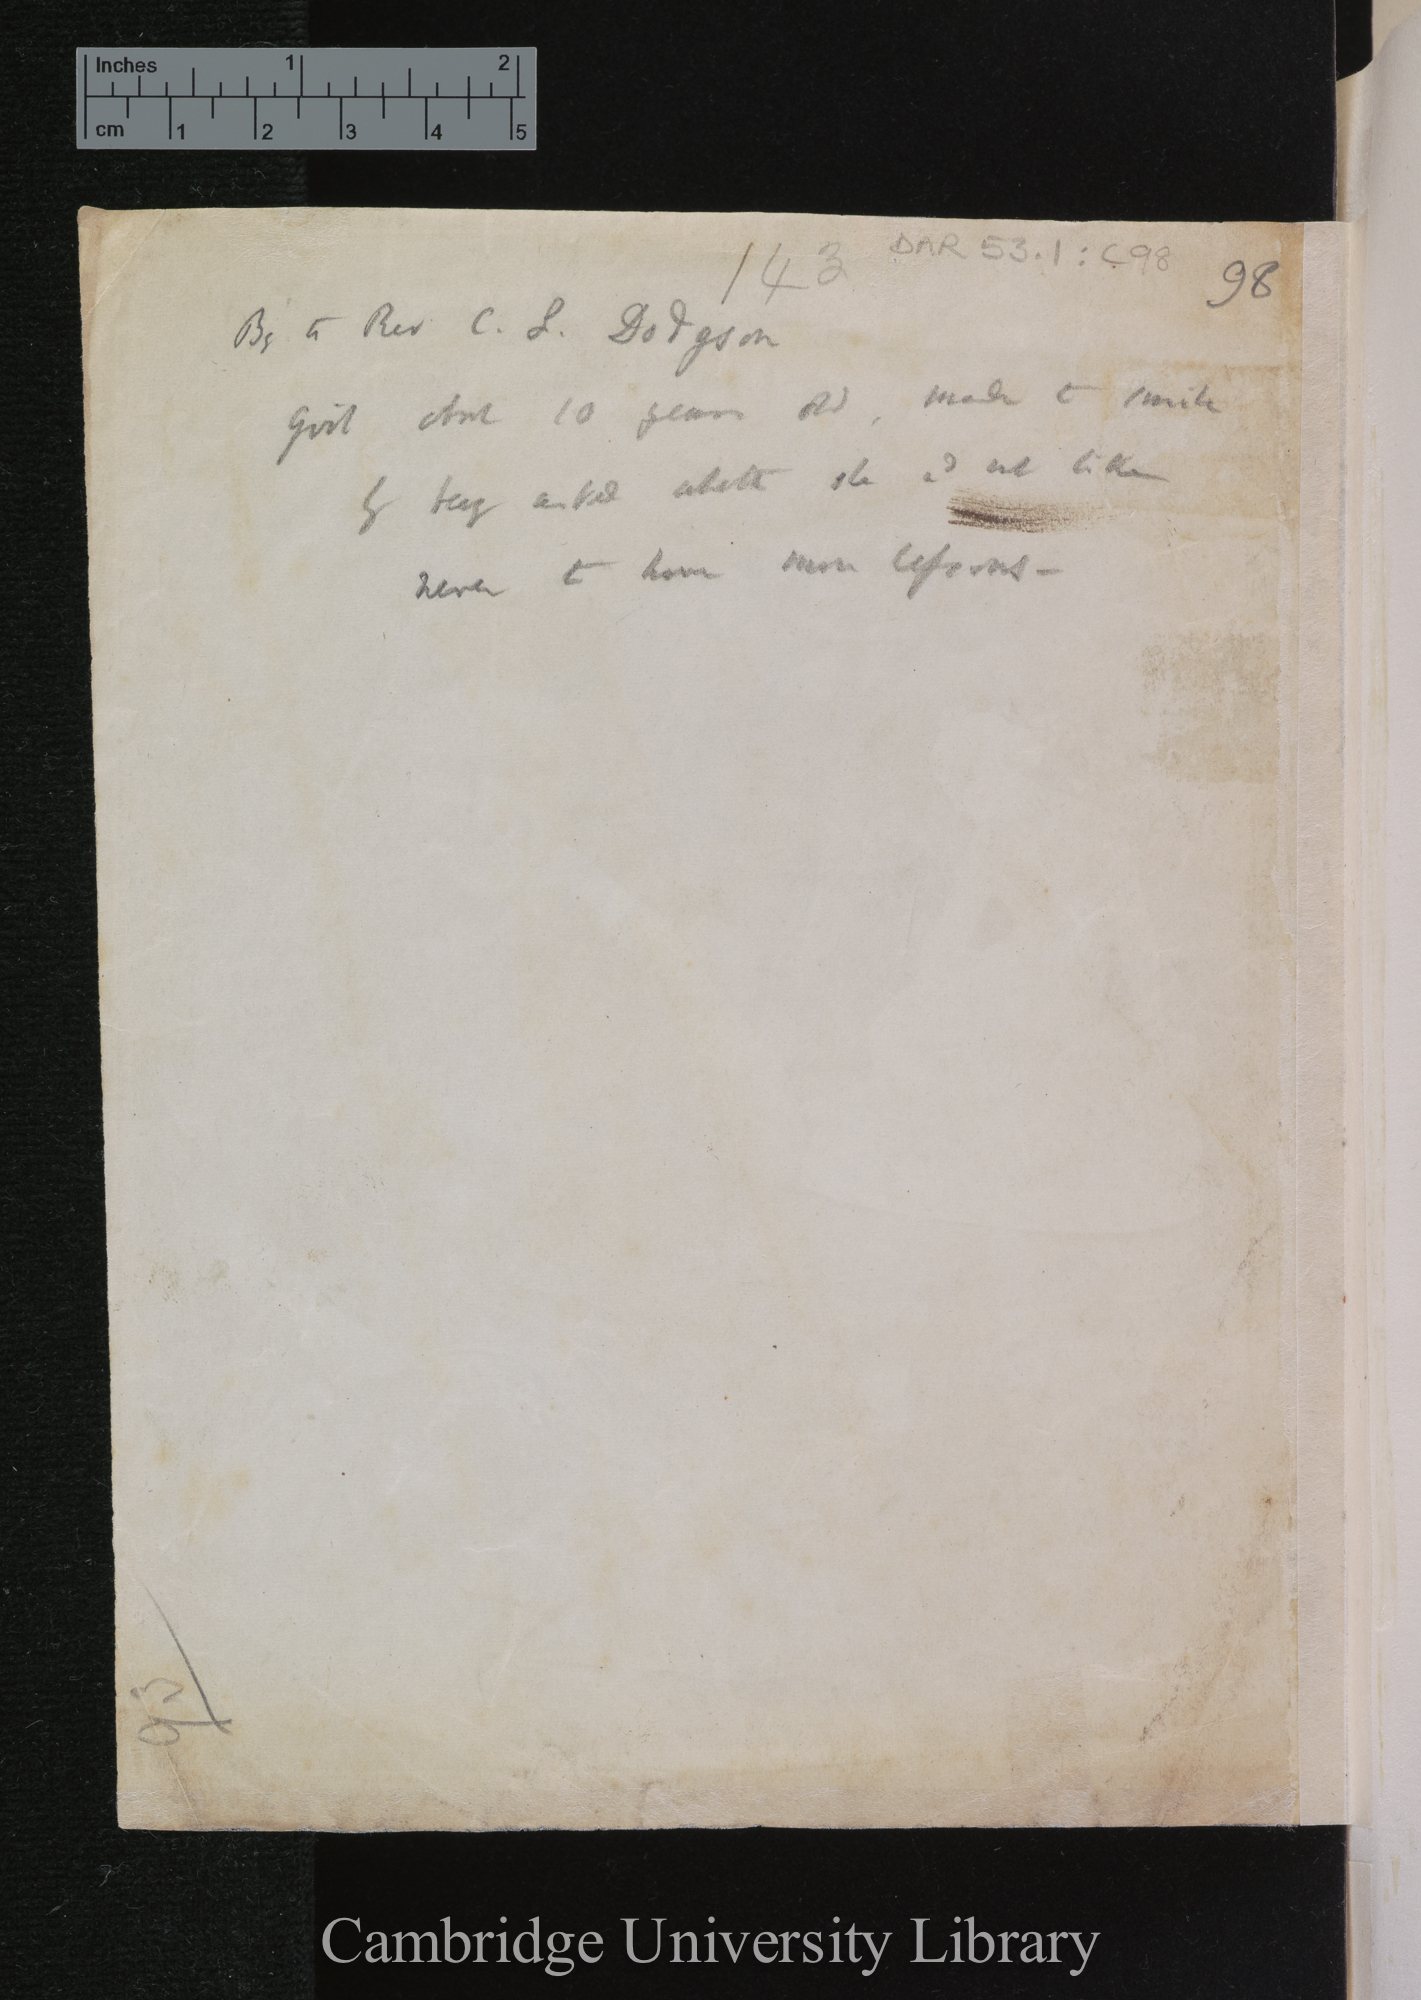 Inches 1 2
cm 1 2 3 4 5
143 DAR 53.1:C98 98
By the Rev C. L. Dodgson
Girl about 10 years old, made to smile
by being asked whether she wd not like
never to have more lessons—
93
Cambridge University Library